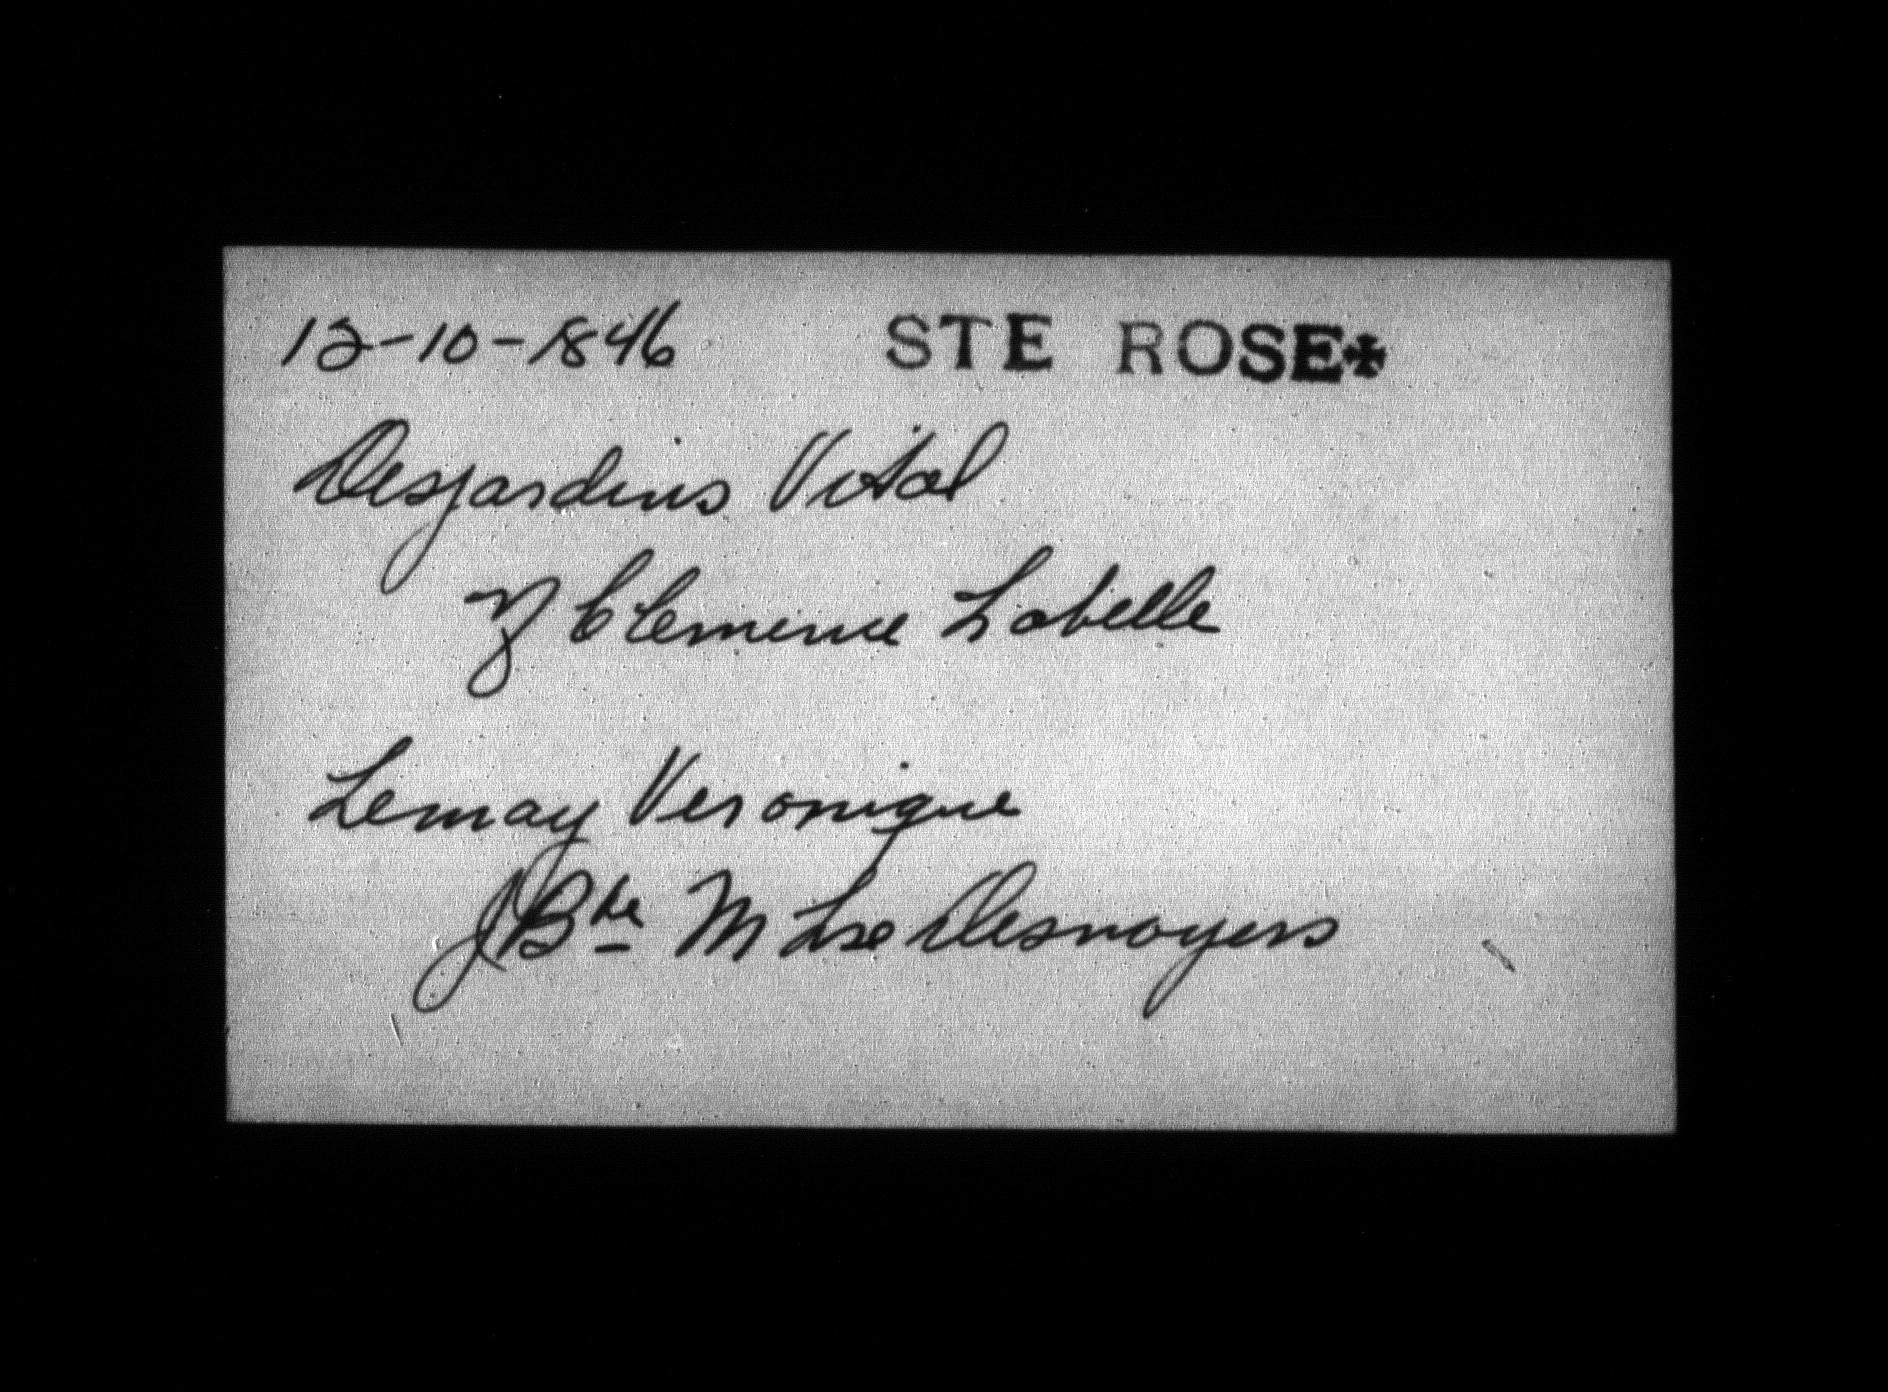 12-10-1846 STE ROSE✠
Desjardins Vital
& Clemence Labelle
Lemay Veronique
J Bte M Lse Desnoyers